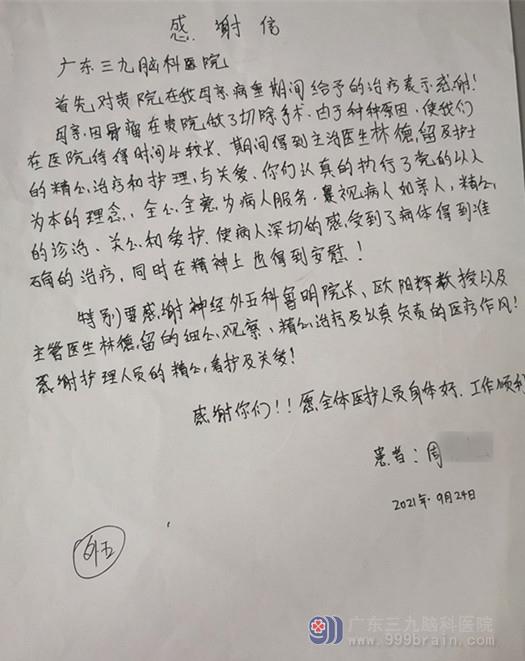 感谢信
广东三九脑科医院
首先,对贵院在我母亲病重期间给予的治疗表示感谢!
母亲因骨瘤在贵院做了切除手术.由于种种原因,使我们
在医院待得时间比较长.期间得到主治医生林德留及护士
的精心治疗和护理,与关爱.你们认真的执行了党的以人
为本的理念,全心全意为病人服务.视病人如亲人,精心
的诊治、关心和爱护.使病人深切的感受到了病体得到准
确的治疗,同时在精神上也得到安慰!
特别要感谢神经外五科鲁明院长、欧阳辉教授以及
主管医生林德留的细心观察、精心治疗及认真负责的医疗作风!
感谢护理人员的精心看护及关爱!
感谢你们!!愿全体医护人员身体好.工作顺利
患者:周
2021年9月24日
外五
广东三九脑科医院
www.999brain.com